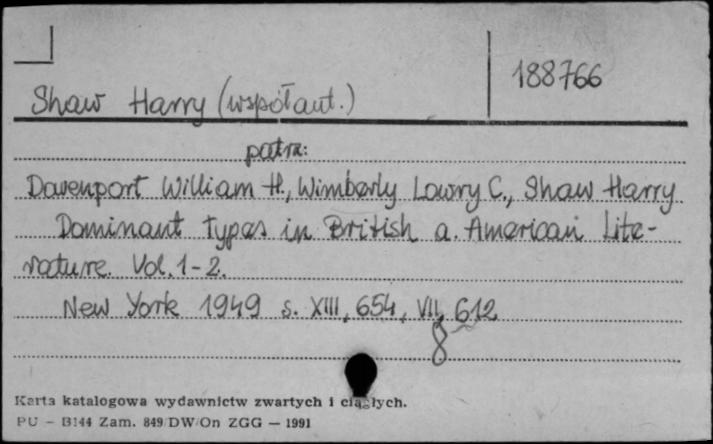 188766
Shaw Harry (współaut.)
patrz:
Davenport William H., Wimberly Lowry C., Shaw Harry
Dominant types in British a. American Lite-
rature. Vol. 1-2.
New York 1949 s. XIII, 654, VII, 612
8
Karta katalogowa wydawnictw zwartych i ciągłych.
PU - B144 Zam. 849/DW/On ZGG — 1991